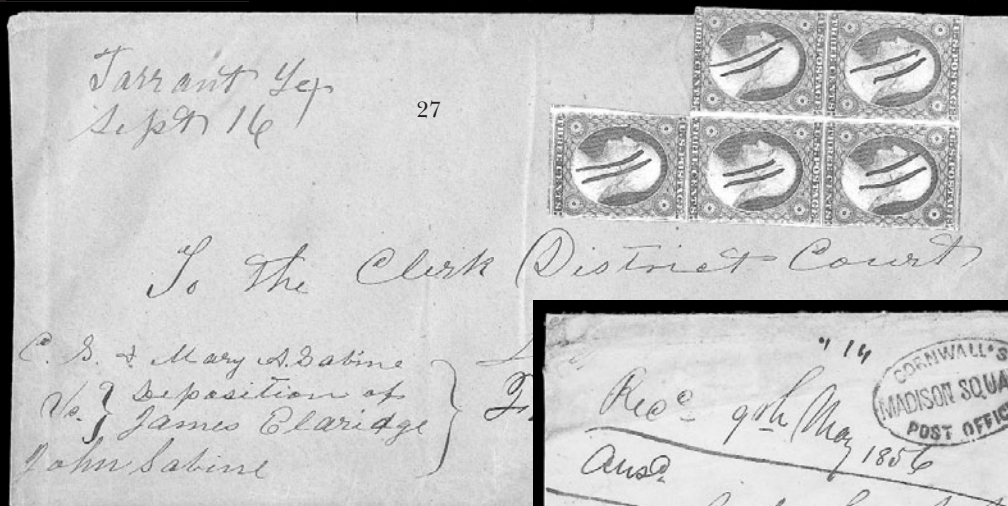 Tarrant Tex
Sept 16
27
To The Clerk District Court
C. S. & Mary A. Sabine
Vs. } Deposition of
James Elaridge
John Sabine
Recd 9th May 1856
Ansd
CORNWALL'S
MADISON SQUA
POST OFFIC